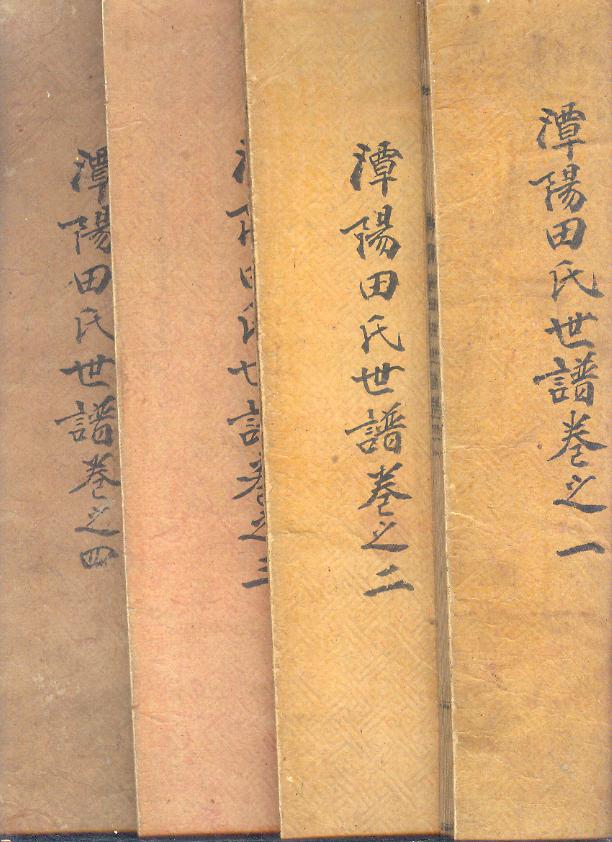 潭陽田氏世譜卷之一
潭陽田氏世譜卷之二
潭陽田氏世譜卷之三
潭陽田氏世譜卷之四